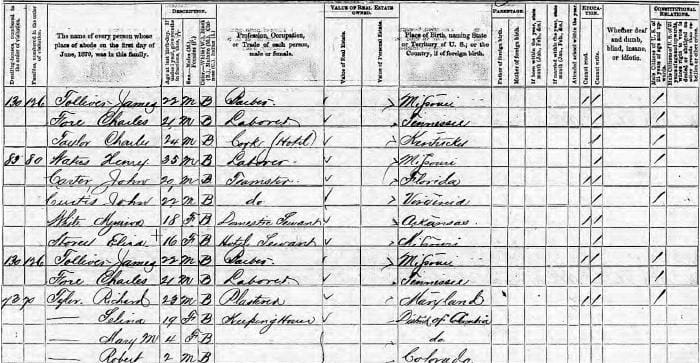 Dwelling-houses, numbered in the order of visitation.
Families, numbered in the order of visitation.
The name of every person whose place of abode on the first day of June, 1870, was in this family.
DESCRIPTION.
Profession, Occupation, or Trade of each person, male or female.
VALUE OF REAL ESTATE OWNED.
Value of Real Estate.
Value of Personal Estate.
Place of Birth, naming State or Territory of U. S.; or the Country, if of foreign birth.
PARENTAGE.
Father of foreign birth.
Mother of foreign birth.
If born within the year, state month (Jan., Feb., &c.)
If married within the year, state month (Jan., Feb., &c.)
Attended school within the year.
EDUCATION.
Cannot read.
Cannot write.
Whether deaf and dumb, blind, insane, or idiotic.
CONSTITUTIONAL RELATIONS.
130 126 Tolliver James 22 M B Barber Missouri
Fore Charles 21 M B Laborer Tennessee
Taylor Charles 24 M B Cook (Hotel) Kentucky
82 80 Henry 35 M B Laborer Missouri
Carter John 20 M B Teamster Florida
Curtis John 22 M B do Virginia
White 18 F B Domestic Servant Arkansas
Eliza 16 F B Hotel Servant Missouri
130 126 Tolliver James 22 M B Barber Missouri
Fore Charles 21 M B Laborer Tennessee
72 70 Tyler Richard 23 M B Plasterer Maryland
— Selina 19 F B Keeping House District of Columbia
— Mary M 4 F B do
— Robert 2 M B Colorado